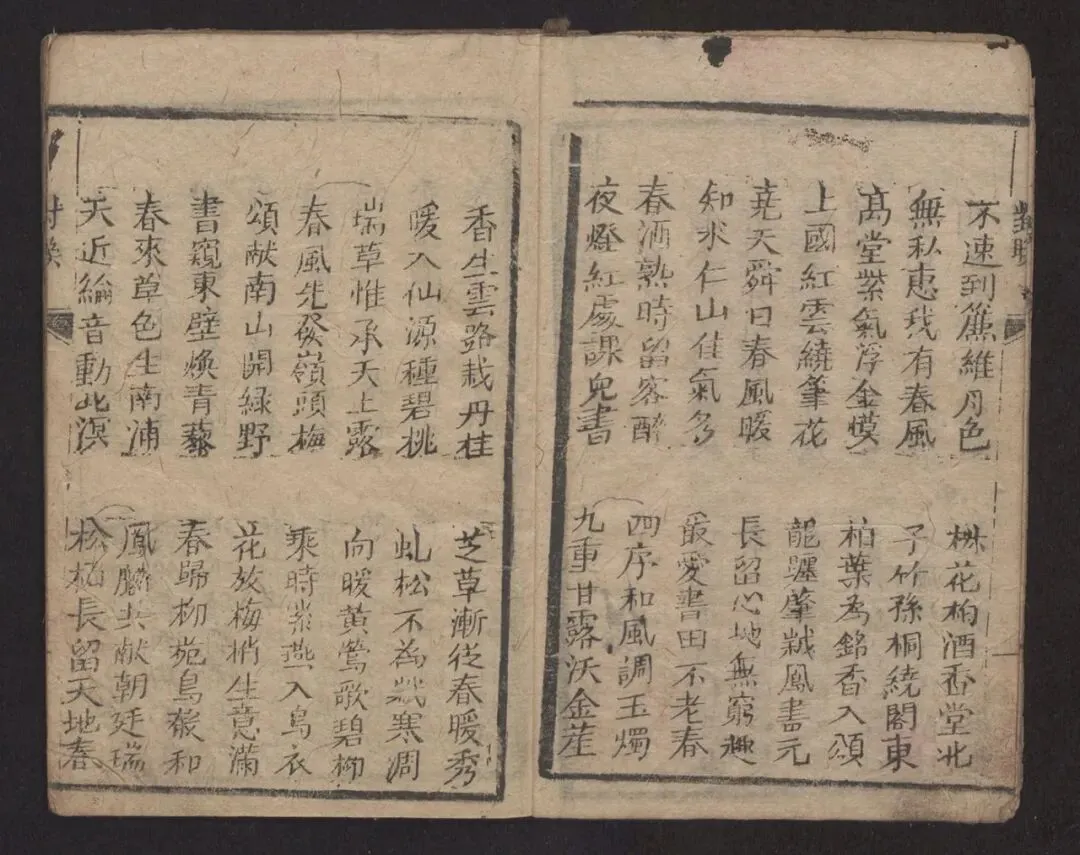 對聯
不速到簾維月色
無私惠我有春風
高堂紫氣浮金幙
上國紅雲繞筆花
堯天舜日春風暖
知水仁山佳氣多
春酒熟時留客醉
夜燈紅處課兒書
椒花柏酒香堂北
子竹孫桐繞閣東
柏葉為銘香入頌
龍躔肇歲鳳書元
長留心地無窮趣
最愛書田不老春
四序和風調玉燭
九重甘露沃金莖
香生雲路栽丹桂
暖入仙源種碧桃
瑞草惟承天上露
春風先發嶺頭梅
頌献南山開緑野
書窺東壁煥青藜
春來草色生南浦
天近綸音動北溟
芝草漸從春暖秀
虬松不為歲寒凋
向暖黄鶯歌碧柳
乘時紫燕入烏衣
花放梅梢生意滿
春歸柳苑鳥聲和
鳳麟共献朝廷瑞
松柏長留天地春